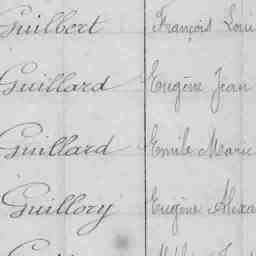 Guilbert François Loui
Guillard Eugène Jean
Guillard Emile Marie
Guillory Eugène Alexa